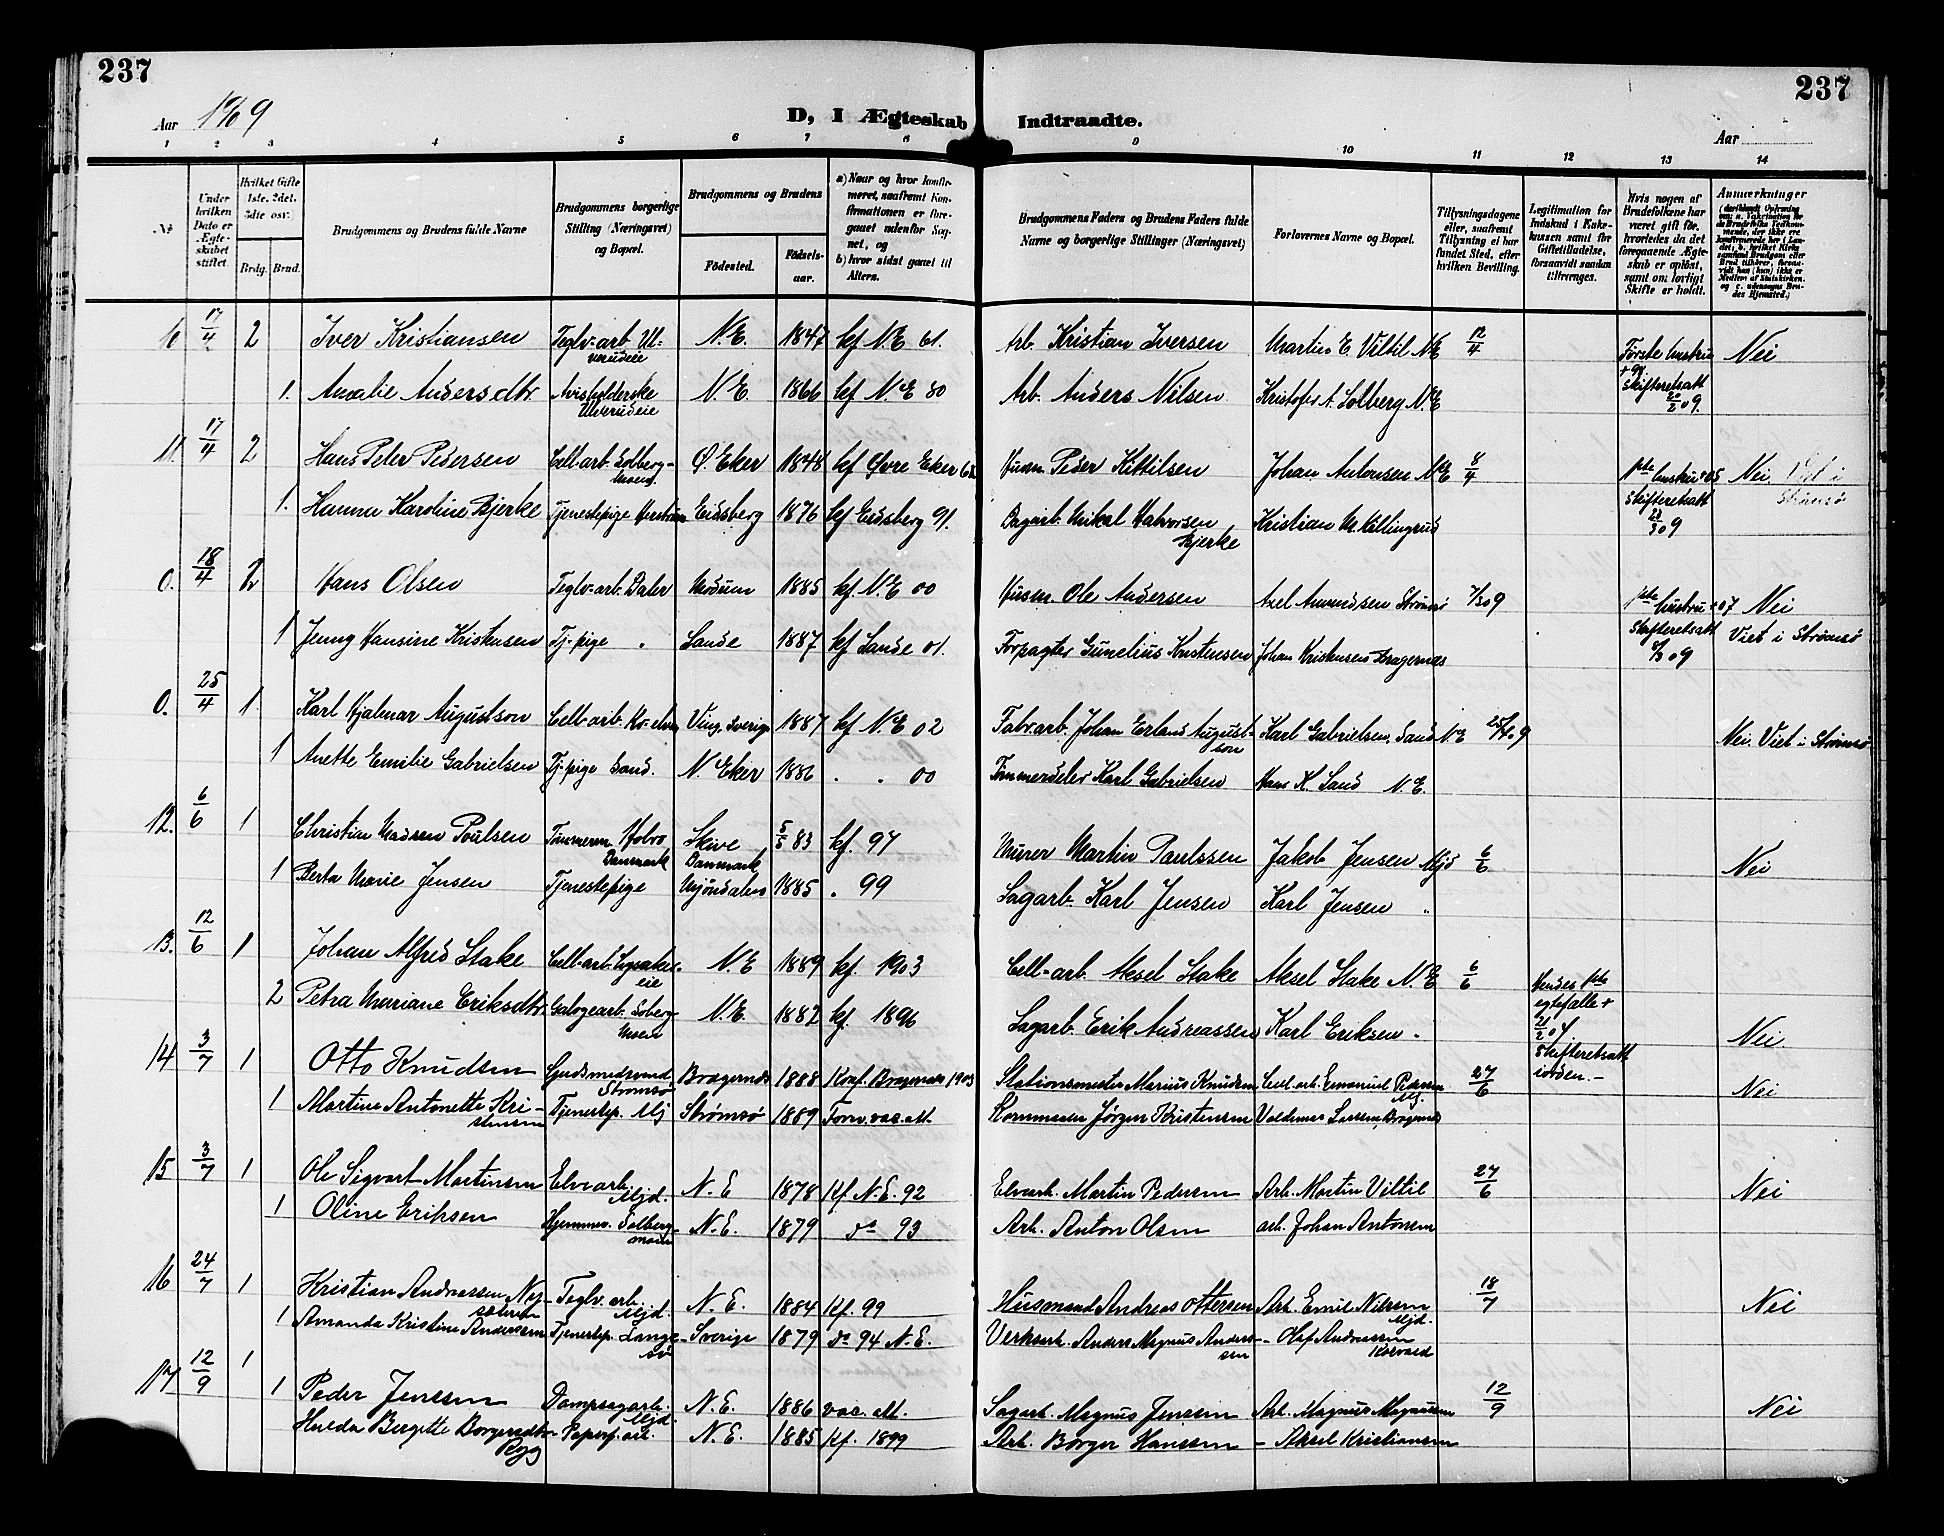 237
237
Aar 1909
D, I Ægteskab Indtraadte.
Aar
1 2 3 4 5 6 7 8 9 10 11 12 13 14
No
Under hvilken Dato er Ægteskabet stiftet.
Hvilket Gifte 1ste, 2det, 3die osv.
Brdg. Brud.
Brudgommens og Brudens fulde Navne
Brudgommens borgerlige Stilling (Næringsvei) og Bopæl.
Brudgommens og Brudens
Fødested.
Fødselsaar.
a) Naar og hvor konfirmeret, saafremt Konfirmationen er foregaaet udenfor Sognet, og
b) hvor sidst gaaet til Alters.
Brudgommens Faders og Brudens Faders fulde Navne og borgerlige Stillinger (Næringsvei)
Forlovernes Navne og Bopæl.
Tillysningsdagene eller, saafremt Tillysning ei har fundet Sted, efter hvilken Bevilling.
Legitimation for Indskud i Enkekassen samt for Giftetilladelse, forsaavidt saadan tiltrænges.
Hvis nogen af Brudefolkene har været gift før, hvorledes da det foregaaende Ægteskab er opløst, samt om lovligt Skifte er holdt.
Anmærkninger
10 17/4 2 Iver Kristiansen Teglv.arb. Ulverudeie N.E. 1847 kf N.E 61. Arb. Kristian Iversen Martin E. Viltil N.E 12/4 Første hustru Nei
1. Amalie Andersdtr. Avisholderske Ulverudeie N.E. 1866 kf N.E 80 Arb. Anders Nilsen Kristofer A. Solberg N.E + 99. Skifteretsatt 20/2 09.
11. 17/4 2 Hans Peter Pedersen Cell-arb. Solbergmoen. Ø. Eker 1848 kf Øvre Eker 62 Husm. Peder Kittilsen Johan Antonsen N.E 8/4 1ste hustru + 05 Nei Viet i Strømsø
1. Hanna Karoline Bjerke Tjenestepige Eidsberg 1876 kf Eidsberg 91. Dagarb. Mikal Halvorsen Bjerke Kristian M. Killingrud Skifteretsatt 23/3 09
0. 18/4 2 Hans Olsen Teglv-arb. Daler Modum 1885 kf N.E 00 Husm. Ole Andersen Axel Amundsen Strømsø 09 1ste hustru + 07 Nei
1 Jenny Hansine Kristensen Tj-pige " Sande 1887 kf Sande 01. Forpagter Gunelius Kristensen Johan Kristensen Bragernes Skifteretsatt 09 Viet i Strømsø
0. 25/4 1. Karl Hjalmar Augustson Cell-arb. Ving, Sverige 1887 kf N.E 02 Fabr.arb. Johan Erland Augustson Karl Gabrielsen, Sand N.E 25/4 09 Nei. Viet i Strømsø
1 Anette Emilie Gabrielsen Tj-pige Sand. N. Eker 1886 . . 00 Tømmerdeler Karl Gabrielsen Hans K. Sand N.E.
12. 6/6 1 Christian Madsen Poulsen Tømmerm. Hobro Danmark Skive Danmark 5/5 83 kf. 97 Murer Martin Paulssen Jakob Jensen Mjd 6/6 Nei
1 Berta Marie Jensen Tjenestepige Mjøndalen 1885 . 99 Sagarb. Karl Jensen Karl Jensen "
13. 12/6 1 Johan Alfred Stake Cell-arb. N.E 1889 kf. 1903 Cell-arb. Aksel Stake Aksel Stake N.E 6/6 Hendes 1ste egtefælle +
2 Petra Mariane Eriksdtr. Solbergmoen N.E. 1882 kf. 1896 Sagarb. Erik Andreassen Karl Eriksen - 21/2 07 Skifteretsatt i orden.- Nei.
14 3/7 1 Otto Knudsen Strømsø Bragernes 1888 Konf. Bragernes 1903 Stationsmester Marius Knudsen Cell.arb. Emanuel Pedersen Mj. 27/6 Nei
1 Martine Antonette Kristensen Tjenestep. Mj Strømsø 1889 Forv. vac. att. Jørgen Kristensen Valdemar Larsen, Bragernes
15 3/7 1 Ole Sigvart Martinsen Elvearb. Mjd. N.E 1878 kf N.E. 92 Elvearb. Martin Pedersen Arb. Martin Viltil 27/6 Nei
1 Oline Eriksen Hjemmev. Solbergmoen N.E. 1879 do 93 Arb. Anton Olsen arb. Johan Antonsen
16 24/7 1 Kristian Andreassen Teglv. arb. Mjd. N.E. 1884 kf. 99 Husmand Andreas Ottersen Arb. Emil Nilsen Mjd. 18/7 Nei
1 Amanda Kristine Anderssen Tjenestep. Sverige 1879 do 94 N.E. Verksarb. Anders Magnus Anderssen - Olaf Andreassen
17 12/9 1 1 Peder Jenssen Dampsagarb. Mjd. N.E. 1886 vac. att. Sagarb. Magnus Jenssen Arb. Magnus Magnussen 12/9 Nei
Hulda Bergitte Borgersdtr. Ryg Papirf. arb. N.E. 1885 kf. 1899 Arb. Borger Hanssen - Aksel Kristiansen